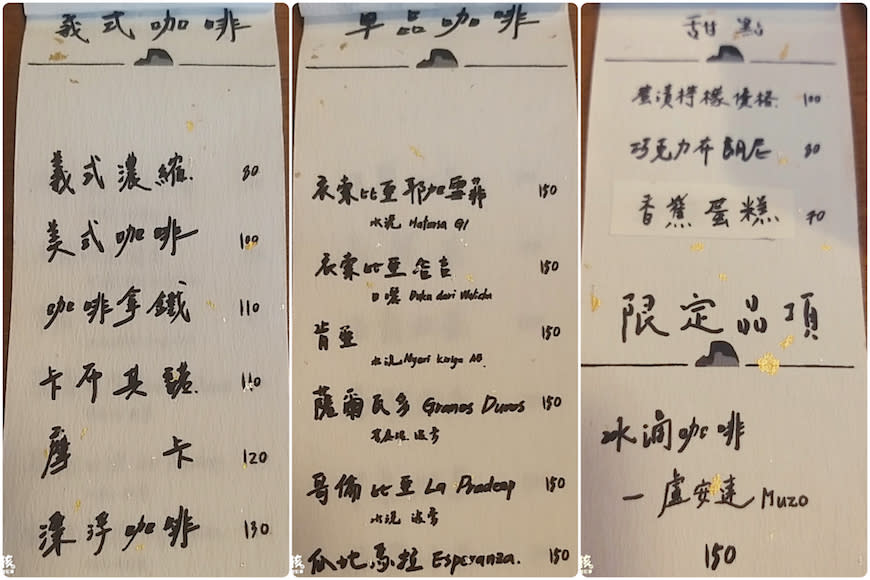 義式咖啡
義式濃縮 80
美式咖啡 100
咖啡拿鐵 110
卡布其諾 110
摩卡 120
漂浮咖啡 130
單品咖啡
衣索比亞耶加雪菲 150
水洗 G1
衣索比亞谷吉 150
日曬
肯亞 150
水洗 Nyeri AB
薩爾瓦多 150
哥倫比亞 La 150
水洗
瓜地馬拉 Esperanza. 150
甜點
蜜漬檸檬優格 100
巧克力布朗尼 80
香蕉蛋糕 70
限定品項
冰滴咖啡
-盧安達 Muzo
150